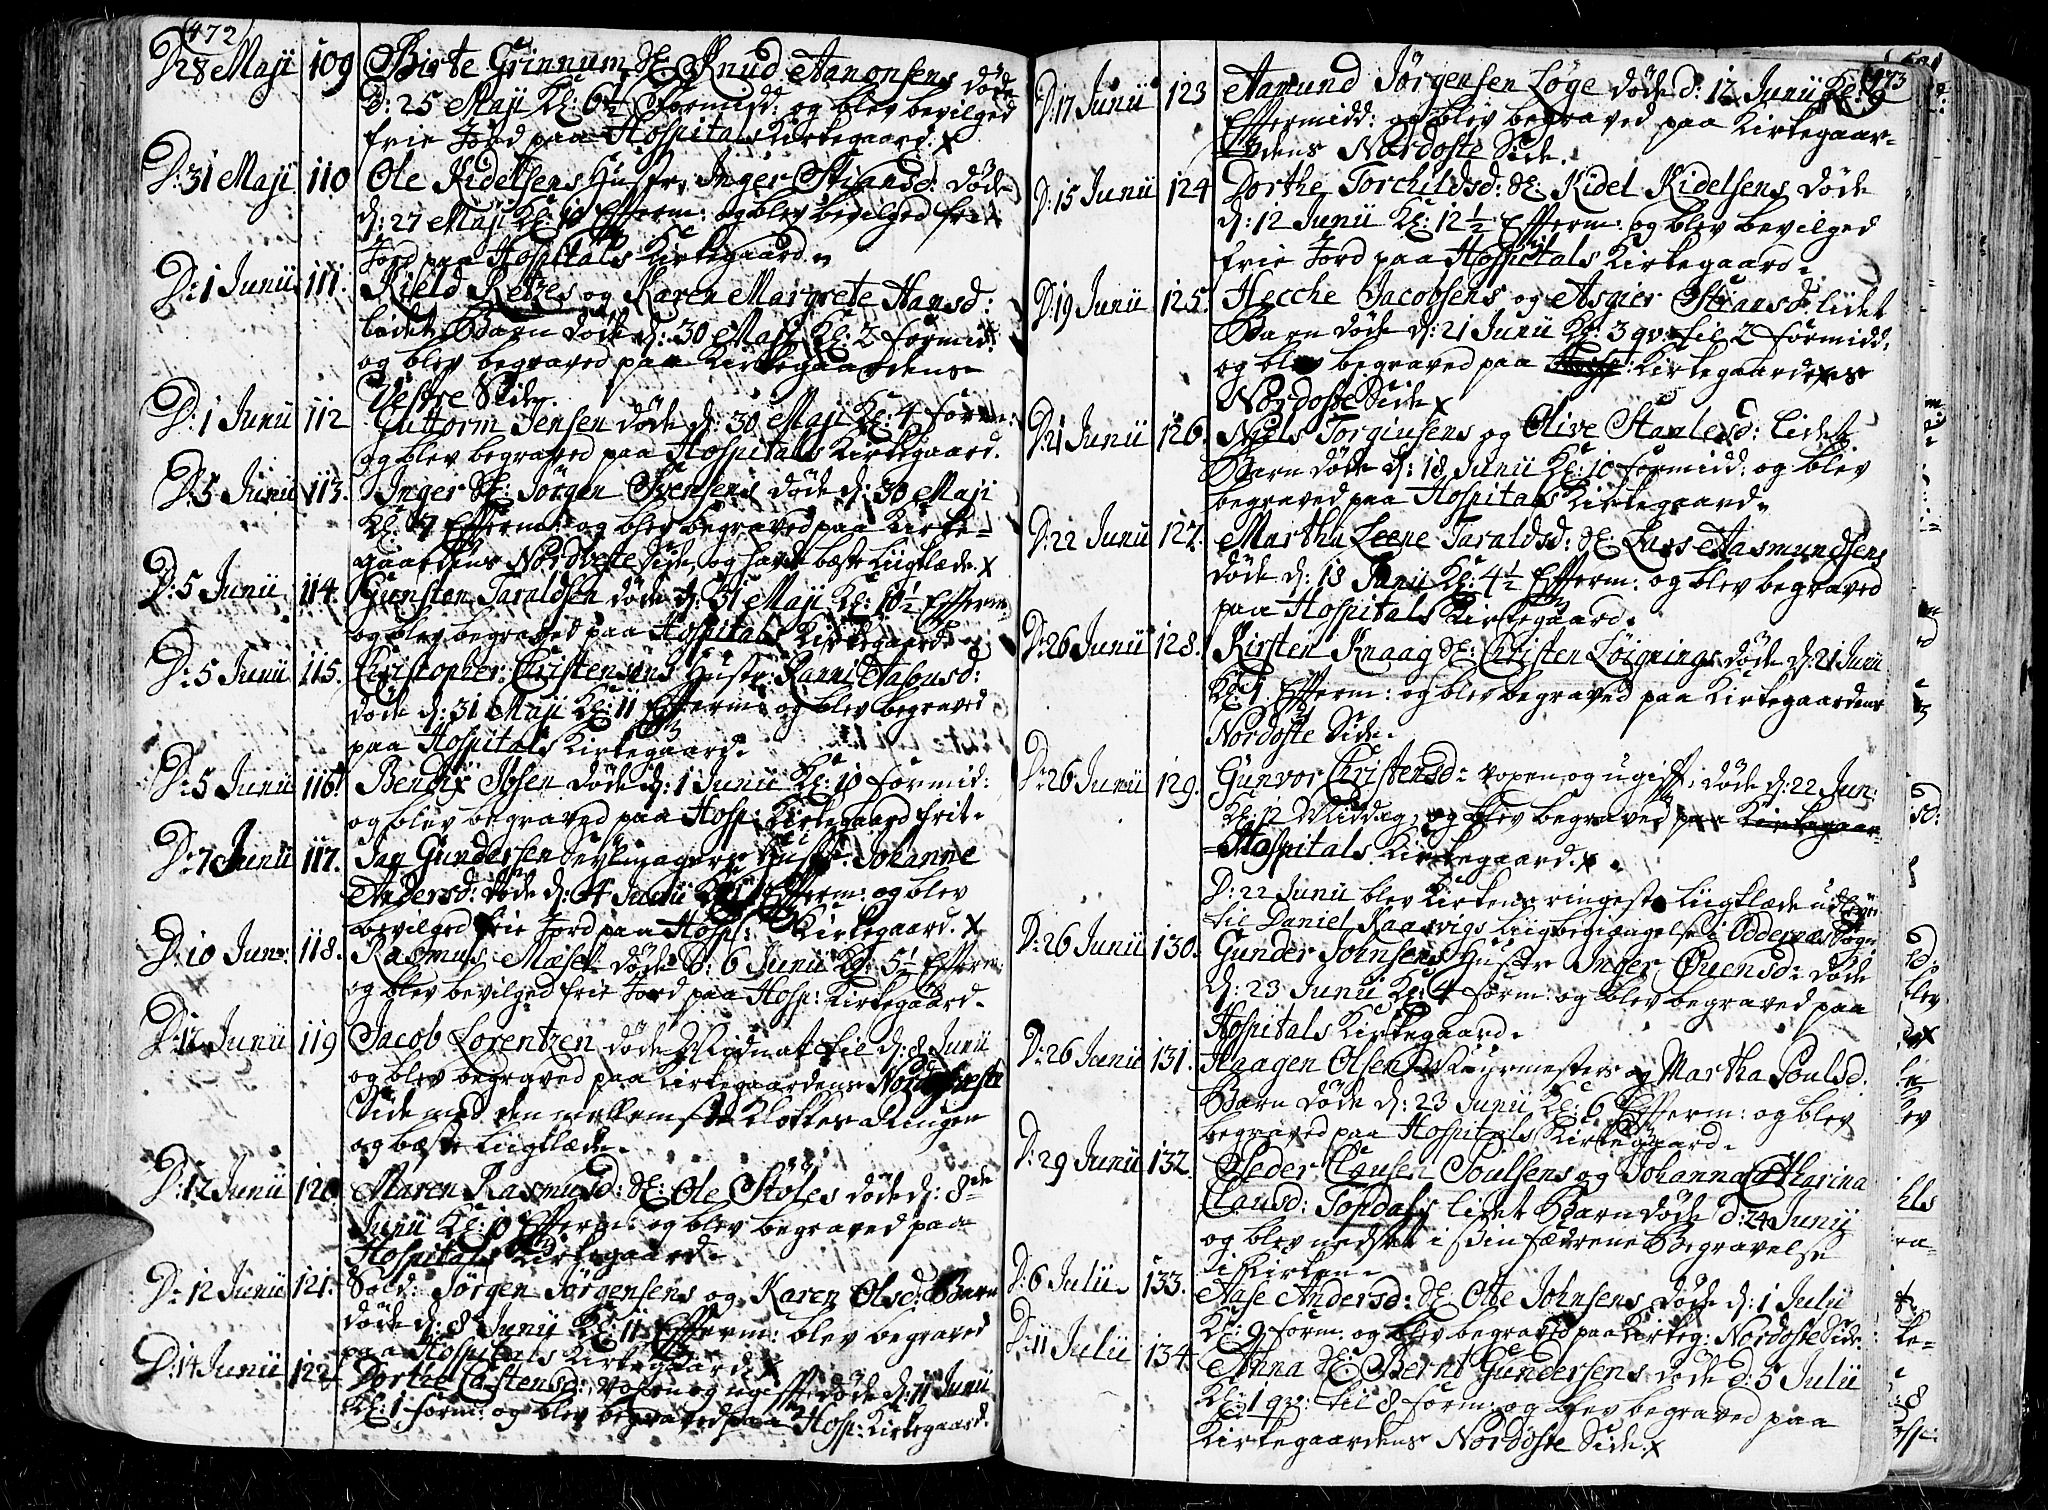 472
D: 28 Maji 109 Birte Grinnum, Sl: Knud Aanonsens døde
d: 25 Maji Kl: 6½ Formidd: og blev bevilged
frie Jord paa Hospitals Kirkegaard. x
D: 31 Maji 110 Ole Kidelsens Hustr, Inger Stiansd: døde
d: 27 Maji Kl: 10 Efterm: og blev bevilged fri
Jord paa Hospitals Kirkegaard.
D: 1 Junii 111. Kield Retzes og Karen Margrete Hansd:
lidet Barn døde d: 30 Maji Kl: 2 formid:
og blev begraved paa Kirkegaardens
Vestre Side.
D: 1 Junii 112 Guttorm Jensen døde d: 30 Maji Kl: 4 form:
og blev begraved paa Hospitals Kirkegaard.
D: 5 Junii 113. Inger Sl: Jørgen Svensens døde d: 30 Maji
Kl: 7 Efterm: og blev begraved paa Kirke-
gaardens Nordveste Side, og havde bæste Liigklæde. x
D: 5 Junii 114. Gunsten Taraldsen døde d: 31 Maji Kl: 10½ Efterm
og blev begraved paa Hospitals Kirkegaard
D: 5 Junii 115. Christopher Christensens Hustr: Ranni Aasusd:
døde d: 31 Maji Kl: 11 Efterm: og blev begraved
paa Hospitals Kirkegaard.
D: 5 Junii 116 Bendix Ibsen døde d: 1 Junii Kl: 10 formid:
og blev begraved paa Hosp: Kirkegaard frit.
D: 7 Junii 117. Jan Gundersen Seylmagers Hustr: Johanne
Andersd: døde d: 4 Junii Kl: Efterm: og blev
bevilged frie Jord paa Hosp: Kirkegaard. x
D: 10 Jun: 118. Rasmus Mæsel døde d: 6 Junii Kl: 5½ Efterm
og blev bevilged frie Jord paa Hosp: Kirkegaard.
D: 12 Junii 119 Jacob Lorentzen døde Midnat til d: 8 Junii
og blev begraved paa Kirkegaardens Nordveste
Side med den mellemste Klokkes Ringen
og bæste Liigklæde.
D: 12 Junii 120 Maren Rasmusd: Sl: Ole Støles døde d: 8de
Junii Kl: Efterm: og blev begraved paa
Hospitals Kirkegaard.
D: 12 Junii 121. Sold: Jørgen Jørgensens og Karen Olsd: Barn
døde d: 8 Junii Kl: 11 Efterm: blev begraved
paa Hospitals Kirkegaard. x
D: 14 Junii 122 Dorthe Castensd: voxen og ugift døde d: 11 Junii
Kl: 1 form: og blev begraved paa Hosp: Kirkegaard.
473
D: 17 Junii 123 Aamund Jørgensen Løge døde d: 12 Junii Kl: 9
Eftermidd: og blev begraved paa Kirkegaar-
dens Nordoste Side.
D: 15 Junii 124 Dorthe Torchildsd: Sl: Kidel Kidelsens døde
d: 12 Junii Kl: 12½ Efterm: og blev bevilged
frie Jord paa Hospitals Kirkegaard.
D: 19 Junii 125. Hecche Jacobsens og Asgier Stransd: lidet
Barn døde d: 21 Junii Kl: 3 qv: til 2 formidd:
og blev begraved paa Kirkegaardens
Nordoste Side x
D: 21 Junii 126. Niels Torgiusens og Olive Stanlesd: lidet
Barn døde d: 18 Junii Kl: 10 formidd: og blev
begraved paa Hospitals Kirkegaard.
D: 22 Junii 127. Martha Leene Taraldsd: Sl: Lars Aasmundsens
døde d: 18 Junii Kl: 4½ Efterm: og blev begraved
paa Hospitals Kirkegaard.
D: 26 Junii 128. Kirsten Knaag Sl: Christen Løignings døde d: 21 Junii
Kl: 1 Efterm: og blev begraved paa Kirkegaardens
Nordoste Side.
D: 26 Junii 129. Gunvor Christensd: voxen og ugift: døde d: 22 Jun:
Kl: 12 Middag, og blev begraved paa Kirkegaar-
Hospitals Kirkegaard. x
D: 22 Junii blev Kirkens ringeste Liigklæde udleveret
til Daniel Raavigs Liigbegiængelse i Oddernæs Sogn
D: 26 Junii 130. Gunder Johnsens Hustr Inger Ovensd: døde
d: 23 Junii Kl: 4 form: og blev begraved paa
Hospitals Kirkegaard.
D: 26 Junii 131. Haagen Olsen Muurmesters og Martha Poulsd.
Barn døde d: 23 Junii Kl: 6 Efterm: og blev
begraved paa Hospitals Kirkegaard.
D: 29 Junii 132. Peder Clausen Poulsens og Johanna Catharina
Clausd: Topdals lidet Barn døde d: 24 Junij
og blev nedsat i sin fædrene Begravelse
i Kirken.
D: 6 Julii 133. Aase Andersd: Sl: Otte Johnsens døde d: 1 Julii
Kl: 9 form: og blev begraved paa Kirkeg: Nordoste Side
D: 11 Julii 134. Anna Sl: Bernt Gundersens døde d: 5 Julii
Kl: 1 qv: til 8 form: og blev begraved paa
Kirkegaardens Nordoste Side. x